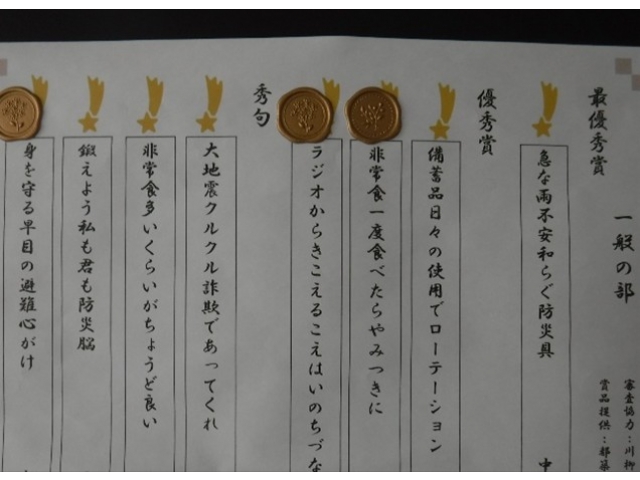 一般の部
審査協力：川柳
賞品提供：都築
最優秀賞
急な雨不安和らぐ防災具
中
優秀賞
備蓄品日々の使用でローテーション
非常食一度食べたらやみつきに
ラジオからきこえるこえはいのちづな
秀句
大地震クルクル詐欺であってくれ
非常食多いくらいがちょうど良い
鍛えよう私も君も防災脳
身を守る早目の避難心がけ